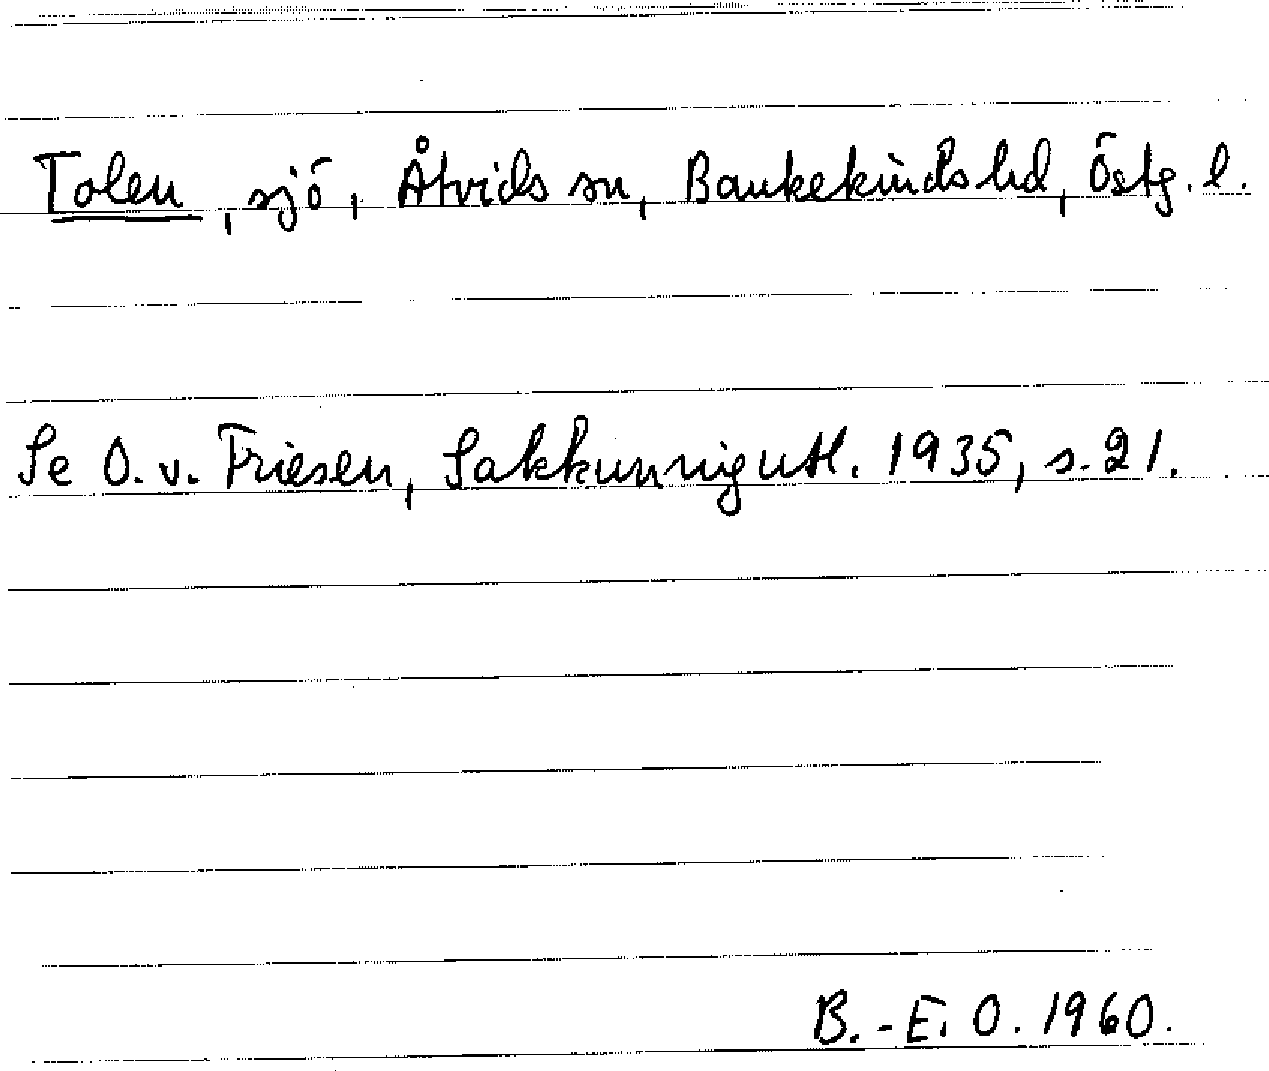 Tolen, sjö, Åtvids sn, Bankekinds hd, Östg. l.
Se O. v. Friesen, Sakkunnigutl. 1935, s. 21.
B.-E. O. 1960.